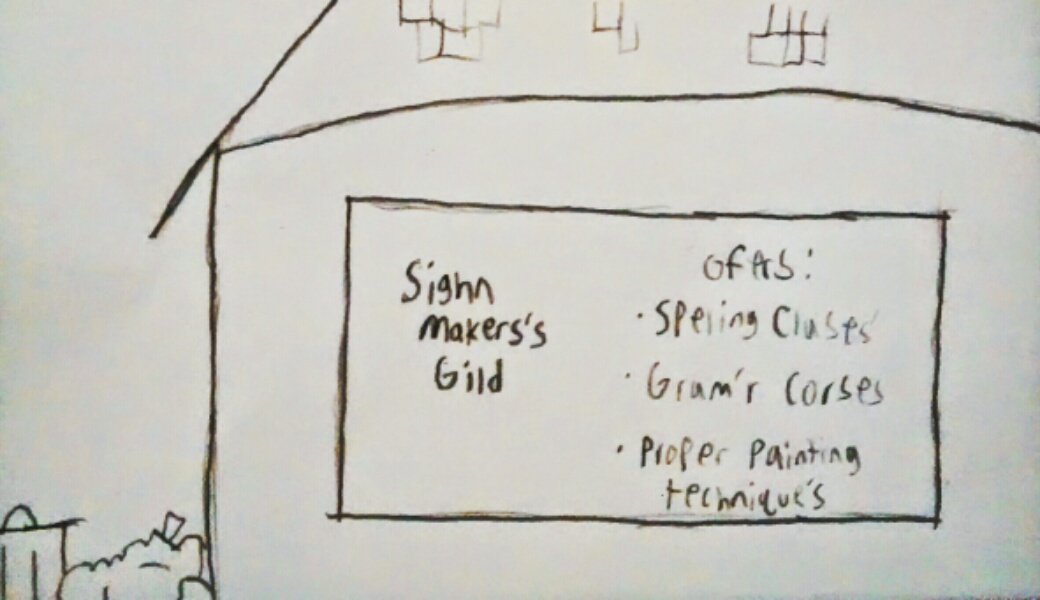 Sighn
makers's
Gild
ofers:
· Speling Clases
· Gram'r Corses
· Proper Painting
technique's